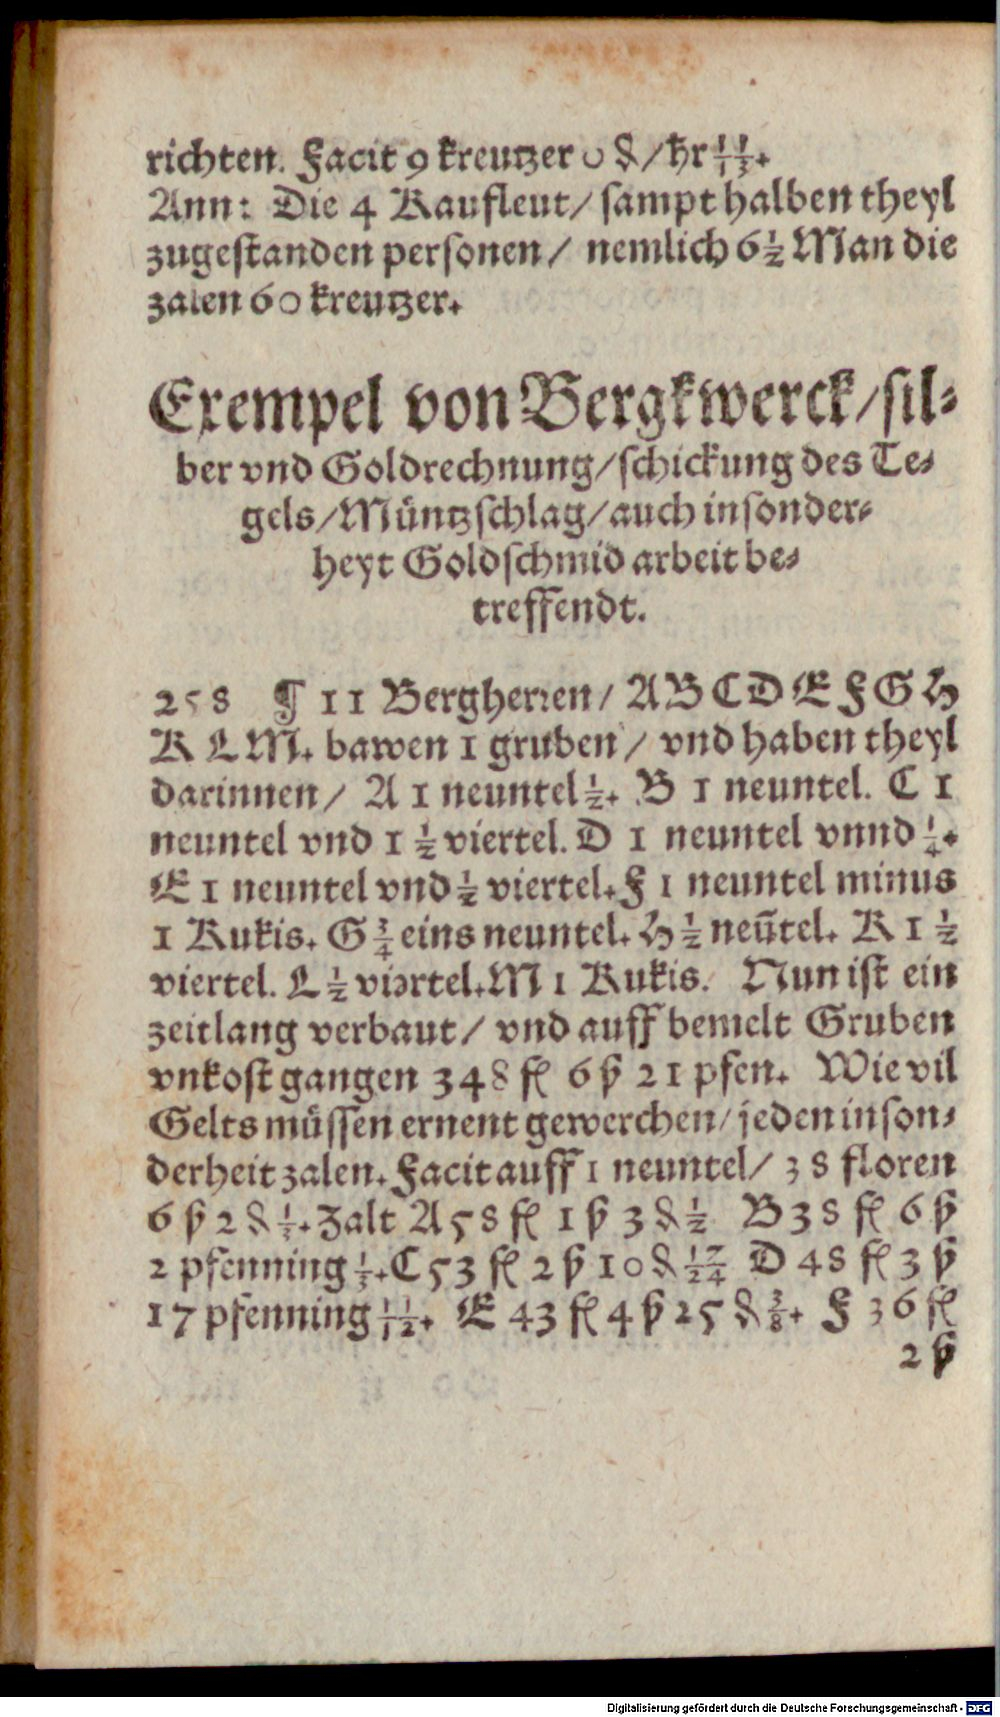 richten. Facit 9 kreutzer 0 ₰/ hr 11/13.
Ann: Die 4 Kaufleut/ sampt halben theyl
zugestanden personen/ nemlich 6 1/2 Man die
zalen 60 kreutzer.
Exempel von Bergkwerck/ sil⸗
ber vnd Goldrechnung/ schickung des Te⸗
gels/ Müntzschlag/ auch insonder⸗
heyt Goldschmid arbeit be⸗
treffendt.
258 ¶ 11 Bergherren/ A B C D E F G H
K L M. bawen 1 gruben/ vnd haben theyl
darinnen/ A 1 neuntel 1/2. B 1 neuntel. C 1
neuntel vnd 1 1/2 viertel. D 1 neuntel vnnd 1/4.
E 1 neuntel vnd 1/2 viertel. F 1 neuntel minus
1 Kukis. G 3/4 eins neuntel. H 1/2 neūtel. K 1 1/2
viertel. L 1/2 viertel. M 1 Kukis. Nun ist ein
zeitlang verbaut/ vnd auff bemelt Gruben
vnkost gangen 348 fl 6 ß 21 pfen. Wie vil
Gelts müssen ernent gewerchen/ jeden inson⸗
derheit zalen. Facit auff 1 neuntel/ 38 floren
6 ß 2 ₰ 1/3. Zalt A 58 fl 1 ß 3 ₰ 1/2 B 38 fl 6 ß
2 pfenning 1/3. C 53 fl 2 ß 10 ₰ 17/24 D 48 fl 3 ß
17 pfenning 11/12. E 43 fl 4 ß 25 ₰ 3/8. F 36 fl
2 ß
Digitalisierung gefördert durch die Deutsche Forschungsgemeinschaft - DFG